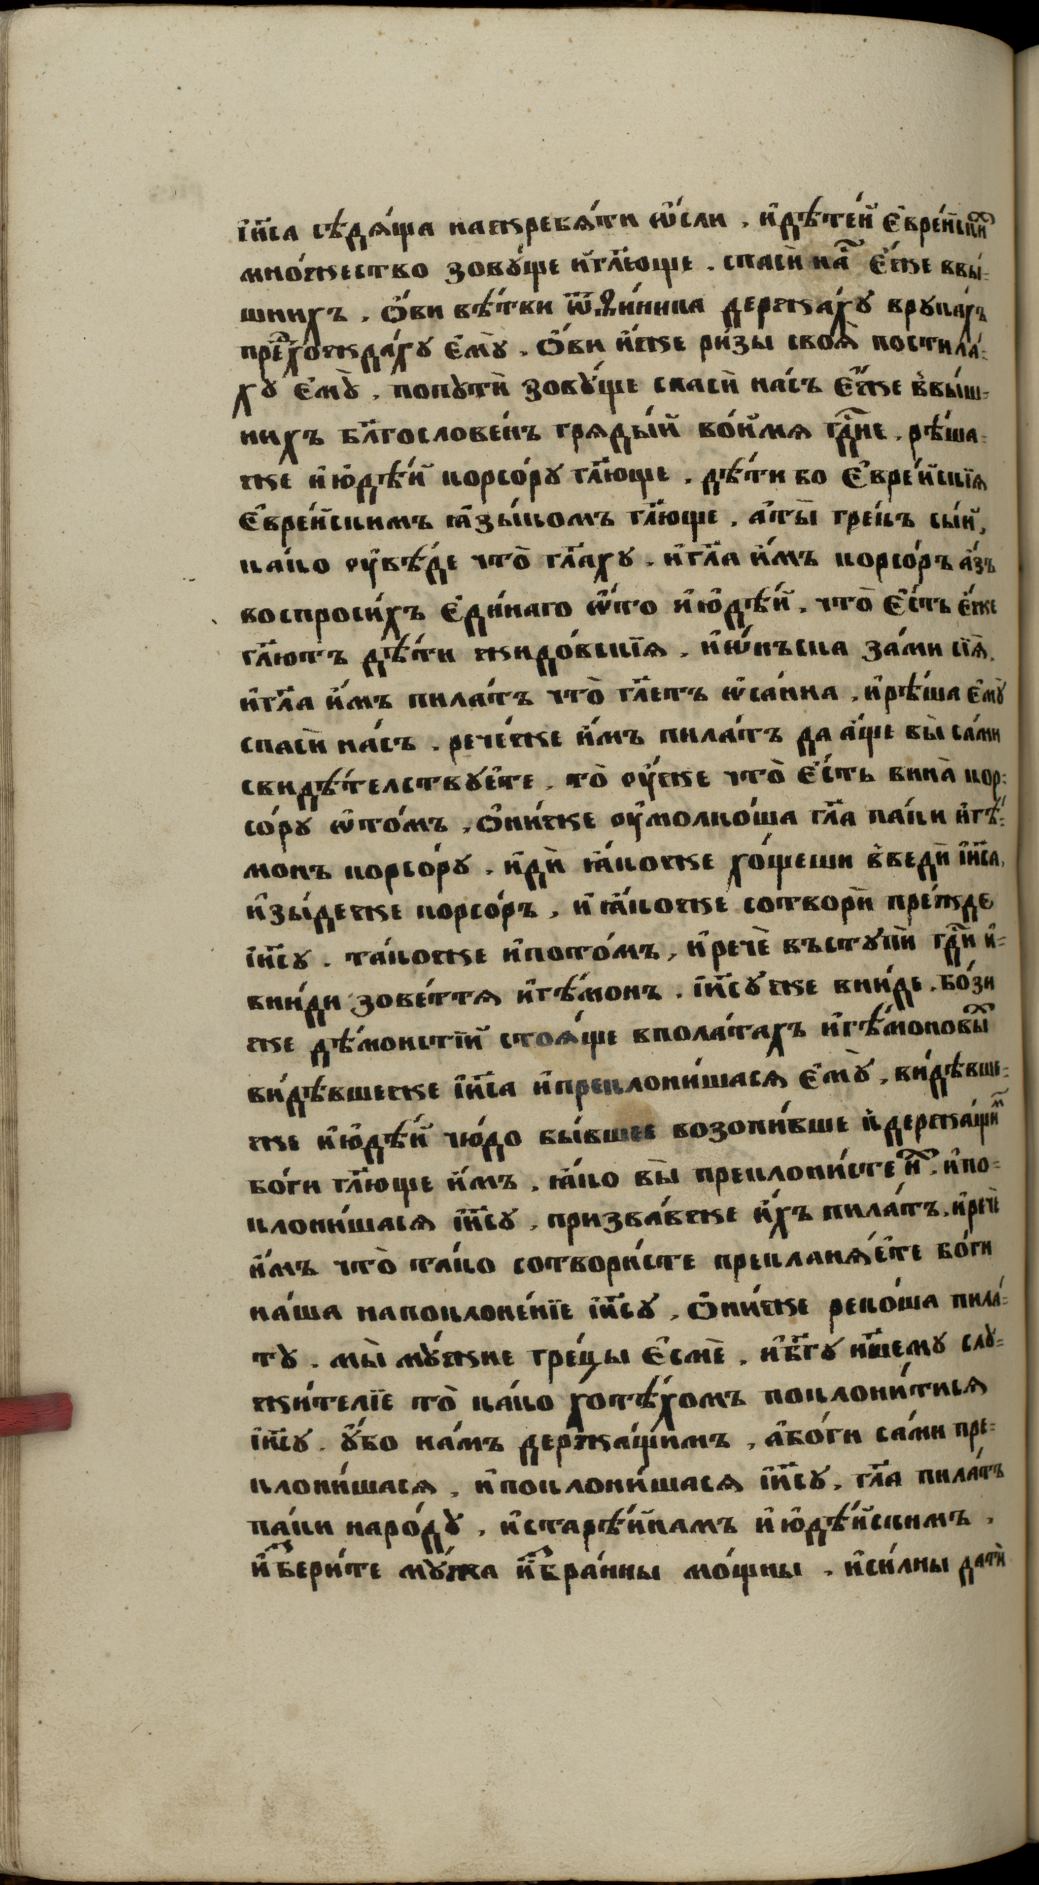 і҆и҃са сѣдѧ́ща нажребѧ́ти ѡ҆́сли , и҆дѣте́й є҆вре́йскиⷯ
мно́жество зовꙋ́ще и҆гл҃юще . спаси̑ наⷭ҇ є҆́же ввы́-
шнихъ , ѻ҆́ви вѣ́тви ѿѳи́ника держа́хꙋ врꙋка́хъ
преⷣхожда́хꙋ є҆мꙋ̀ . ѻ҆́ви и҆́же ри́зы своѧ̑ постила́-
хꙋ є҆мꙋ̀ , попꙋтѝ зовꙋ́ще спаси̑ на́съ є҆́же ввы́ш-
нихъ бл҃гослове́нъ грѧды́й во́имѧ гдⷭ҇не . рѣ́ша-
же и҆ю҆дѣ́й корсо́рꙋ гл҃юще . дѣ́ти бо є҆вре́йскїѧ
є҆вре́йскимъ ꙗ҆зы́комъ гл҃юще , а҆ты̀ гре́къ сы́й,
ка́ко ᲂу҆вѣ́де что̀ гл҃ахꙋ . и҆гл҃а и҆́мъ корсо́ръ а҆́зъ
воспроси́хъ є҆ди́наго ѡ҆́то и҆ю҆дѣ́й . что̀ є҆́сть є҆́же
гл҃ютъ дѣ́ти жидо́вскїѧ , и҆ѡ҆́нъска за́ми сїѧ̀.
и҆гл҃а и҆́мъ пила́тъ что̀ гл҃етъ ѡ҆са́нна , и҆рѣ́ша є҆мꙋ̀
спаси̑ на́съ . рече́же и҆́мъ пила́тъ да а҆́ще вы̀ са́ми
свидѣ́телствꙋете . то̀ ᲂу҆́же что̀ є҆́сть вина̀ кор-
со́рꙋ ѡ҆то́мъ , ѻ҆ни́же ᲂу҆молко́ша гл҃а па́ки и҆гѣ́-
монъ корсо́рꙋ . и҆дѝ ꙗ҆́коже хо́щеши введѝ і҆и҃са,
и҆зы́деже корсо́ръ , и҆ ꙗ҆́коже сотворѝ пре́жде
і҆и҃сꙋ . та́коже и҆пото́мъ , и҆ речѐ въстꙋпѝ гдⷭ҇и и҆-
вни́ди зове́ттѧ и҆гѣ́монъ . і҆и҃сꙋ́же вни́де . бо́зи
же дѣ́монстїй стоѧ́ще вполата́хъ и҆гѣ́моновыⷯ
ви́дѣвшеже і҆и҃са и҆преклони́шасѧ є҆мꙋ̀ , ви́дѣвше-
же и҆ю҆дѣ́й чю́до бы́вшее возопи́вше кдержа́щиⷨ
бо́ги гл҃юще и҆́мъ , ꙗ҆́ко вы̀ преклони́сте иⷯ . и҆по-
клони́шасѧ і҆и҃сꙋ , призва́вже и҆́хъ пила́тъ, и҆речѐ
и҆́мъ что̀ та́ко сотвори́сте преклана́ѧете бо́ги
на́ша напоклоне́нїе і҆и҃сꙋ , ѻ҆ни́же реко́ша пила́-
тꙋ . мы̀ мꙋ́жие гре́цы є҆смѐ , и҆бг҃ꙋ нш҃емꙋ слꙋ-
жи́телїе то̀ ка́ко хотѣ́хомъ поклони́тисѧ
і҆и҃сꙋ . ᲂу҆́бо на́мъ держа́щимъ , а҆бо́ги са́ми пре-
клони́шасѧ , и҆поклони́шасѧ і҆и҃сꙋ , гл҃а пила́тъ
па́ки наро́дꙋ , и҆старѣ́йкамъ и҆ю҆дѣ́йскимъ ,
и҆ⷥбери́те мꙋ́жа и҆ⷥбра́нны мо́щны , и҆си́лны датѝ